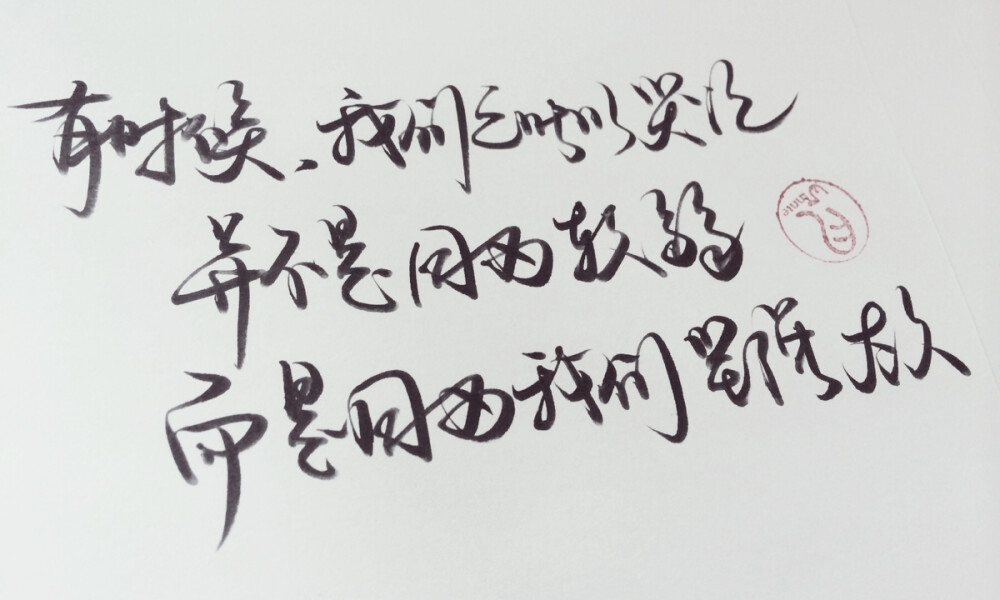 有时候、我们之所以哭泣
并不是因为软弱
而是因为我们坚强太久